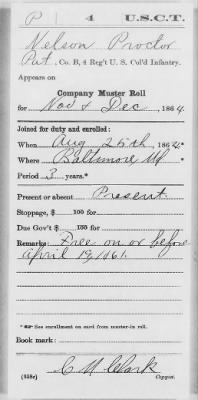 P 4 U.S.C.T.
Nelson Proctor
Pvt, Co. B, 4 Reg't U. S. Col'd Infantry.
Appears on
Company Muster Roll
for Nov & Dec, 1864.
Joined for duty and enrolled:
When Aug 25th, 1864*
Where Baltimore Md*
Period 3 years.*
Present or absent Present
Stoppage, $ 100 for
Due Gov't $ 100 for
Remarks: Free on or before
April 19, 1861.
* See enrollment on card from muster-in roll.
Book mark:
C M Clark
(858c) Copyist.